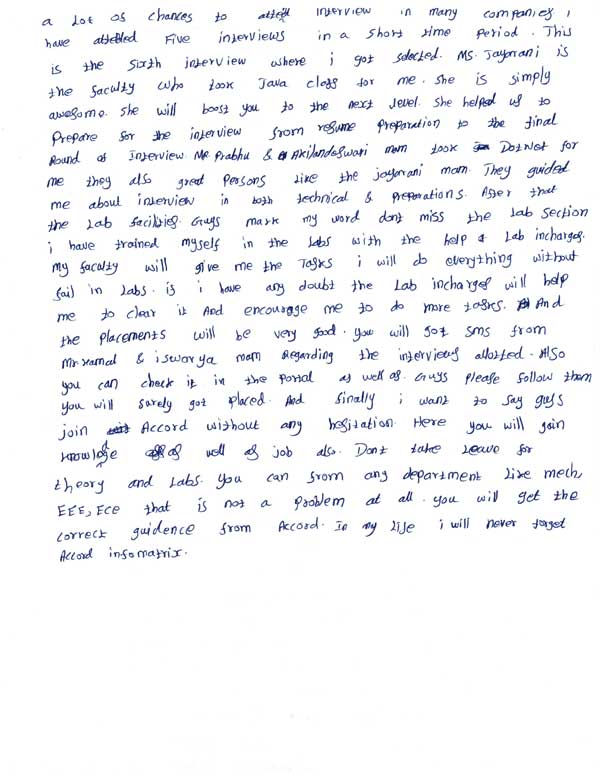 a Lot of chances to attend interview in many companies, i
have attended Five interviews in a short time period. This
is the sixth interview where i got selected. MS. Jayarani is
the faculty who took Java class for me. she is simply
awesome. she will boost you to the next level. she helped us to
Prepare for the interview from resume Preparation to the final
Round of Interview. Mr Prabhu & Akilandeswari mam took DotNet for
me they also great Persons like the jayarani mam. They guided
me about interview in both technical & Preparations. After that
the Lab facilities. Guys mark my word dont miss the Lab section
i have trained myself in the Labs with the help of Lab incharges.
my faculty will give me the Tasks i will do everything without
fail in Labs. if i have any doubt the Lab incharges will help
me to clear it And encourage me to do more tasks. And
the placements will be very good. you will got sms from
Mr.Kamal & iswarya mam Regarding the interviews allotted. Also
you can check it in the Portal as well as. Guys Please follow them
you will surely got placed. And finally i want to say guys
join Accord without any hesitation. Here you will gain
knowledge as well as job also. Dont take Leave for
theory and Labs. you can from any department like mech,
EEE, ECE that is not a problem at all. you will get the
correct guidence from Accord. In my life i will never forget
Accord infomatrix.